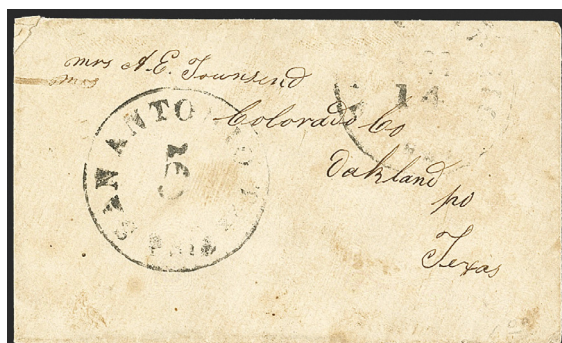 mrs A.E. Townsend
mrs
Colorado Co
Oakland
po
Texas
SAN ANTONIO TEX
5
PAID
14